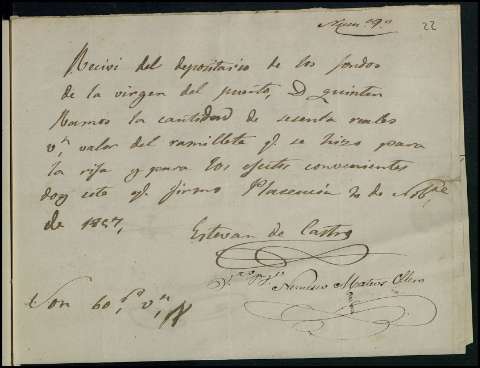 Num.º 9.º
22
Recivi del depositario de los fondos
de la virgen del puerto, D quintin
Ramos la cantidad de sesenta reales
v.n valor del ramillete q.e se hizo para
la rifa y para los efectos convenientes
doy este q.e firmo Plasencia 20 de Nob.re
de 1857,
Estevan de Castro
Nemesio Mateos Ollero
Son 60,r.s v.n